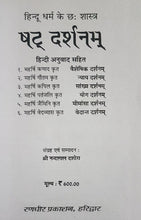 हिन्दू धर्म के छः शास्त्र
षट् दर्शनम्
हिन्दी अनुवाद सहित
१. महर्षि कणाद कृत वैशेषिक दर्शनम्
२. महर्षि गौतम कृत न्याय दर्शनम्
३. महर्षि कपिल कृत सांख्य दर्शनम्
४. महर्षि पतंजलि कृत योग दर्शनम्
५. महर्षि जैमिनि कृत मीमांसा दर्शनम्
६. महर्षि वेदव्यास कृत वेदान्त दर्शनम्
संग्रह एवं सम्पादन :
श्री नन्दलाल दशोरा
मूल्य : ₹ ६००.००
रणधीर प्रकाशन, हरिद्वार